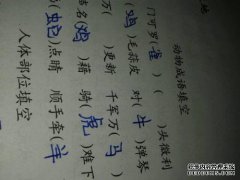 地
动物成语填空
门可罗(雀) ( )头微利
(鸡)毛蒜皮 对(牛)弹琴
万( )更新 千军万(马)
名(鸡)籍 骑(虎)难下
(蛇)点睛 顺手牵(羊)
人体部位填空